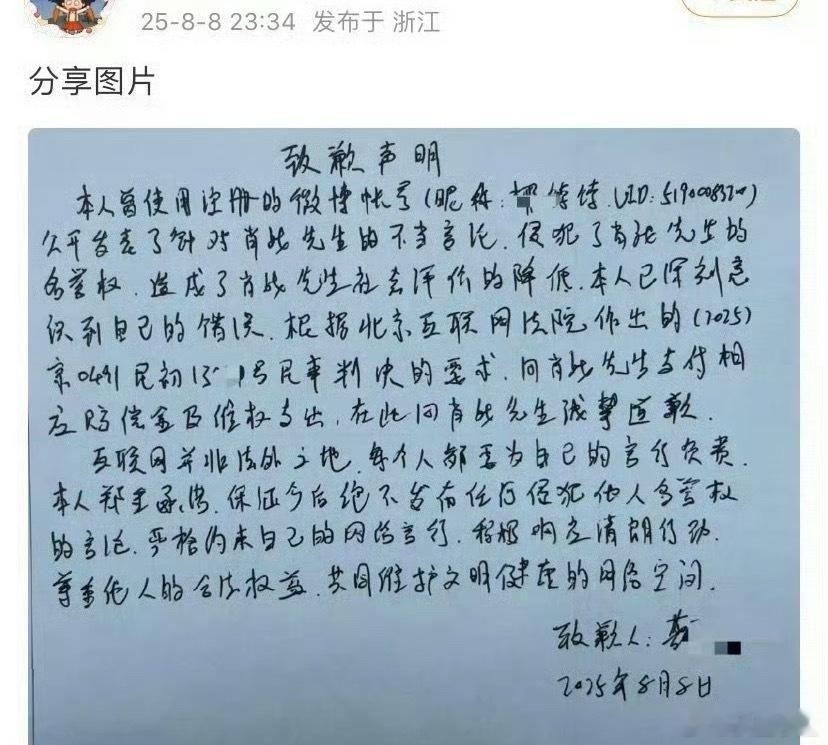 25-8-8 23:34 发布于 浙江
分享图片
致歉声明
本人曾使用注册的微博帐号(昵称: 饽饽,UID:519000832)
公开发表了针对肖战先生的不当言论,侵犯了肖战先生的
名誉权,造成了肖战先生社会评价的降低.本人已深刻意
识到自己的错误.根据北京互联网法院作出的(2025)
京0491民初15 1号民事判决的要求,向肖战先生支付相
应赔偿金及维权支出,在此向肖战先生诚挚道歉.
互联网并非法外之地,每个人都要为自己的言行负责.
本人郑重承诺,保证今后绝不发布任何侵犯他人名誉权
的言论,严格约束自己的网络言行,积极响应清朗行动.
尊重他人的合法权益,共同维护文明健康的网络空间.
致歉人:
2025年8月8日